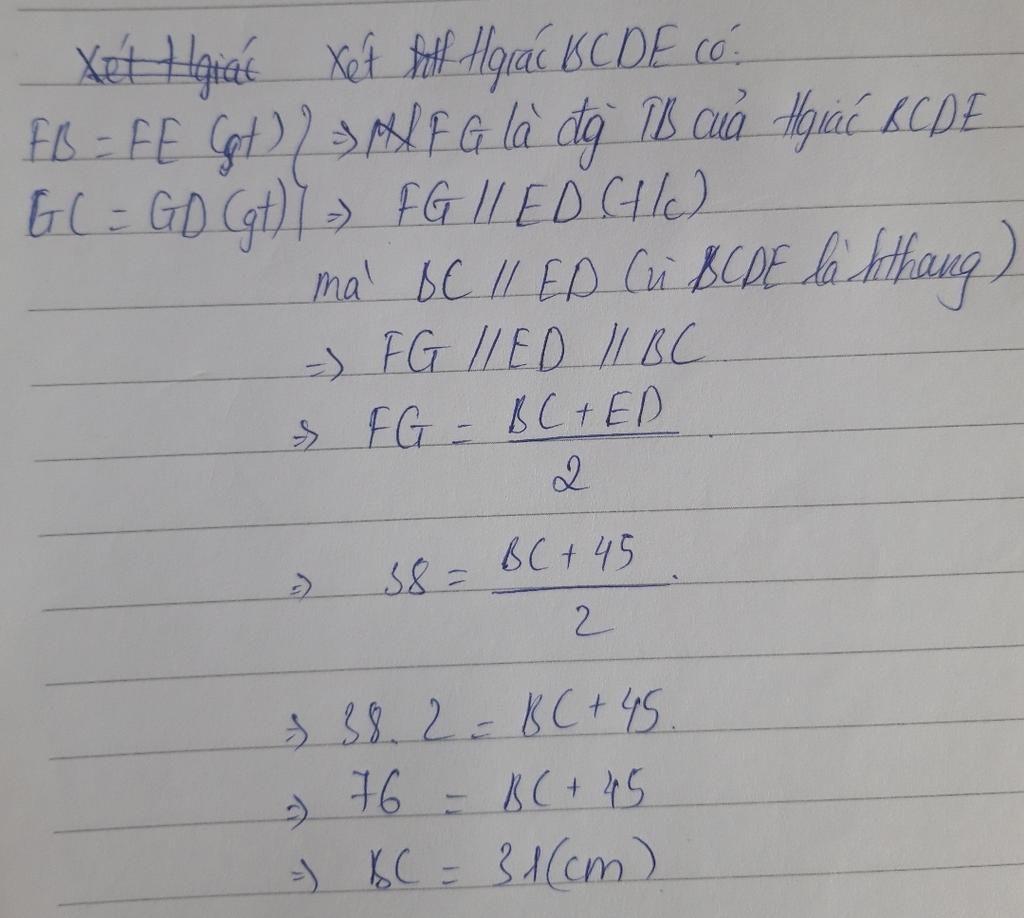 Xét Hgiác BCDE có:
FB = FE (gt) } => FG là đg TB của tgiác BCDE
GC = GD (gt) } => FG // ED (t/c)
mà BC // ED (vì BCDE là hthang)
=> FG // ED // BC
=> FG = BC + ED / 2
=> 38 = BC + 45 / 2
=> 38. 2 = BC + 45.
=> 76 = BC + 45
=> BC = 31 (cm)